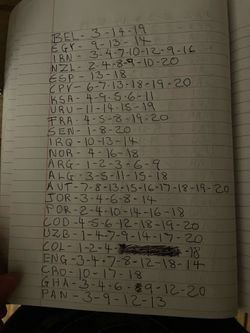 BEL - 3-14-19
EGY - 9-13-14
IRN - 3-4-7-10-12-9-16
NZL - 2-4-8-9-10-20
ESP - 13-18
CPV - 6-7-13-18-19-20
KSA - 4-9-5-6-11
URU - 11-14-15-19
FRA - 4-5-8-19-20
SEN - 1-8-20
IRQ - 10-13-14
NOR - 4-16-18
ARG - 1-2-3-6-9
ALG - 3-5-11-15-18
AUT - 7-8-13-15-16-17-18-19-20
JOR - 3-4-6-8-14
POR - 2-4-10-14-16-18
COD - 4-5-6-12-18-19-20
UZB - 1-4-7-9-14-17-20
COL - 1-2-4- -18
ENG - 3-4-7-8-12-18-14
CRO - 10-17-18
GHA - 3-4-6-9-12-20
PAN - 3-9-12-13